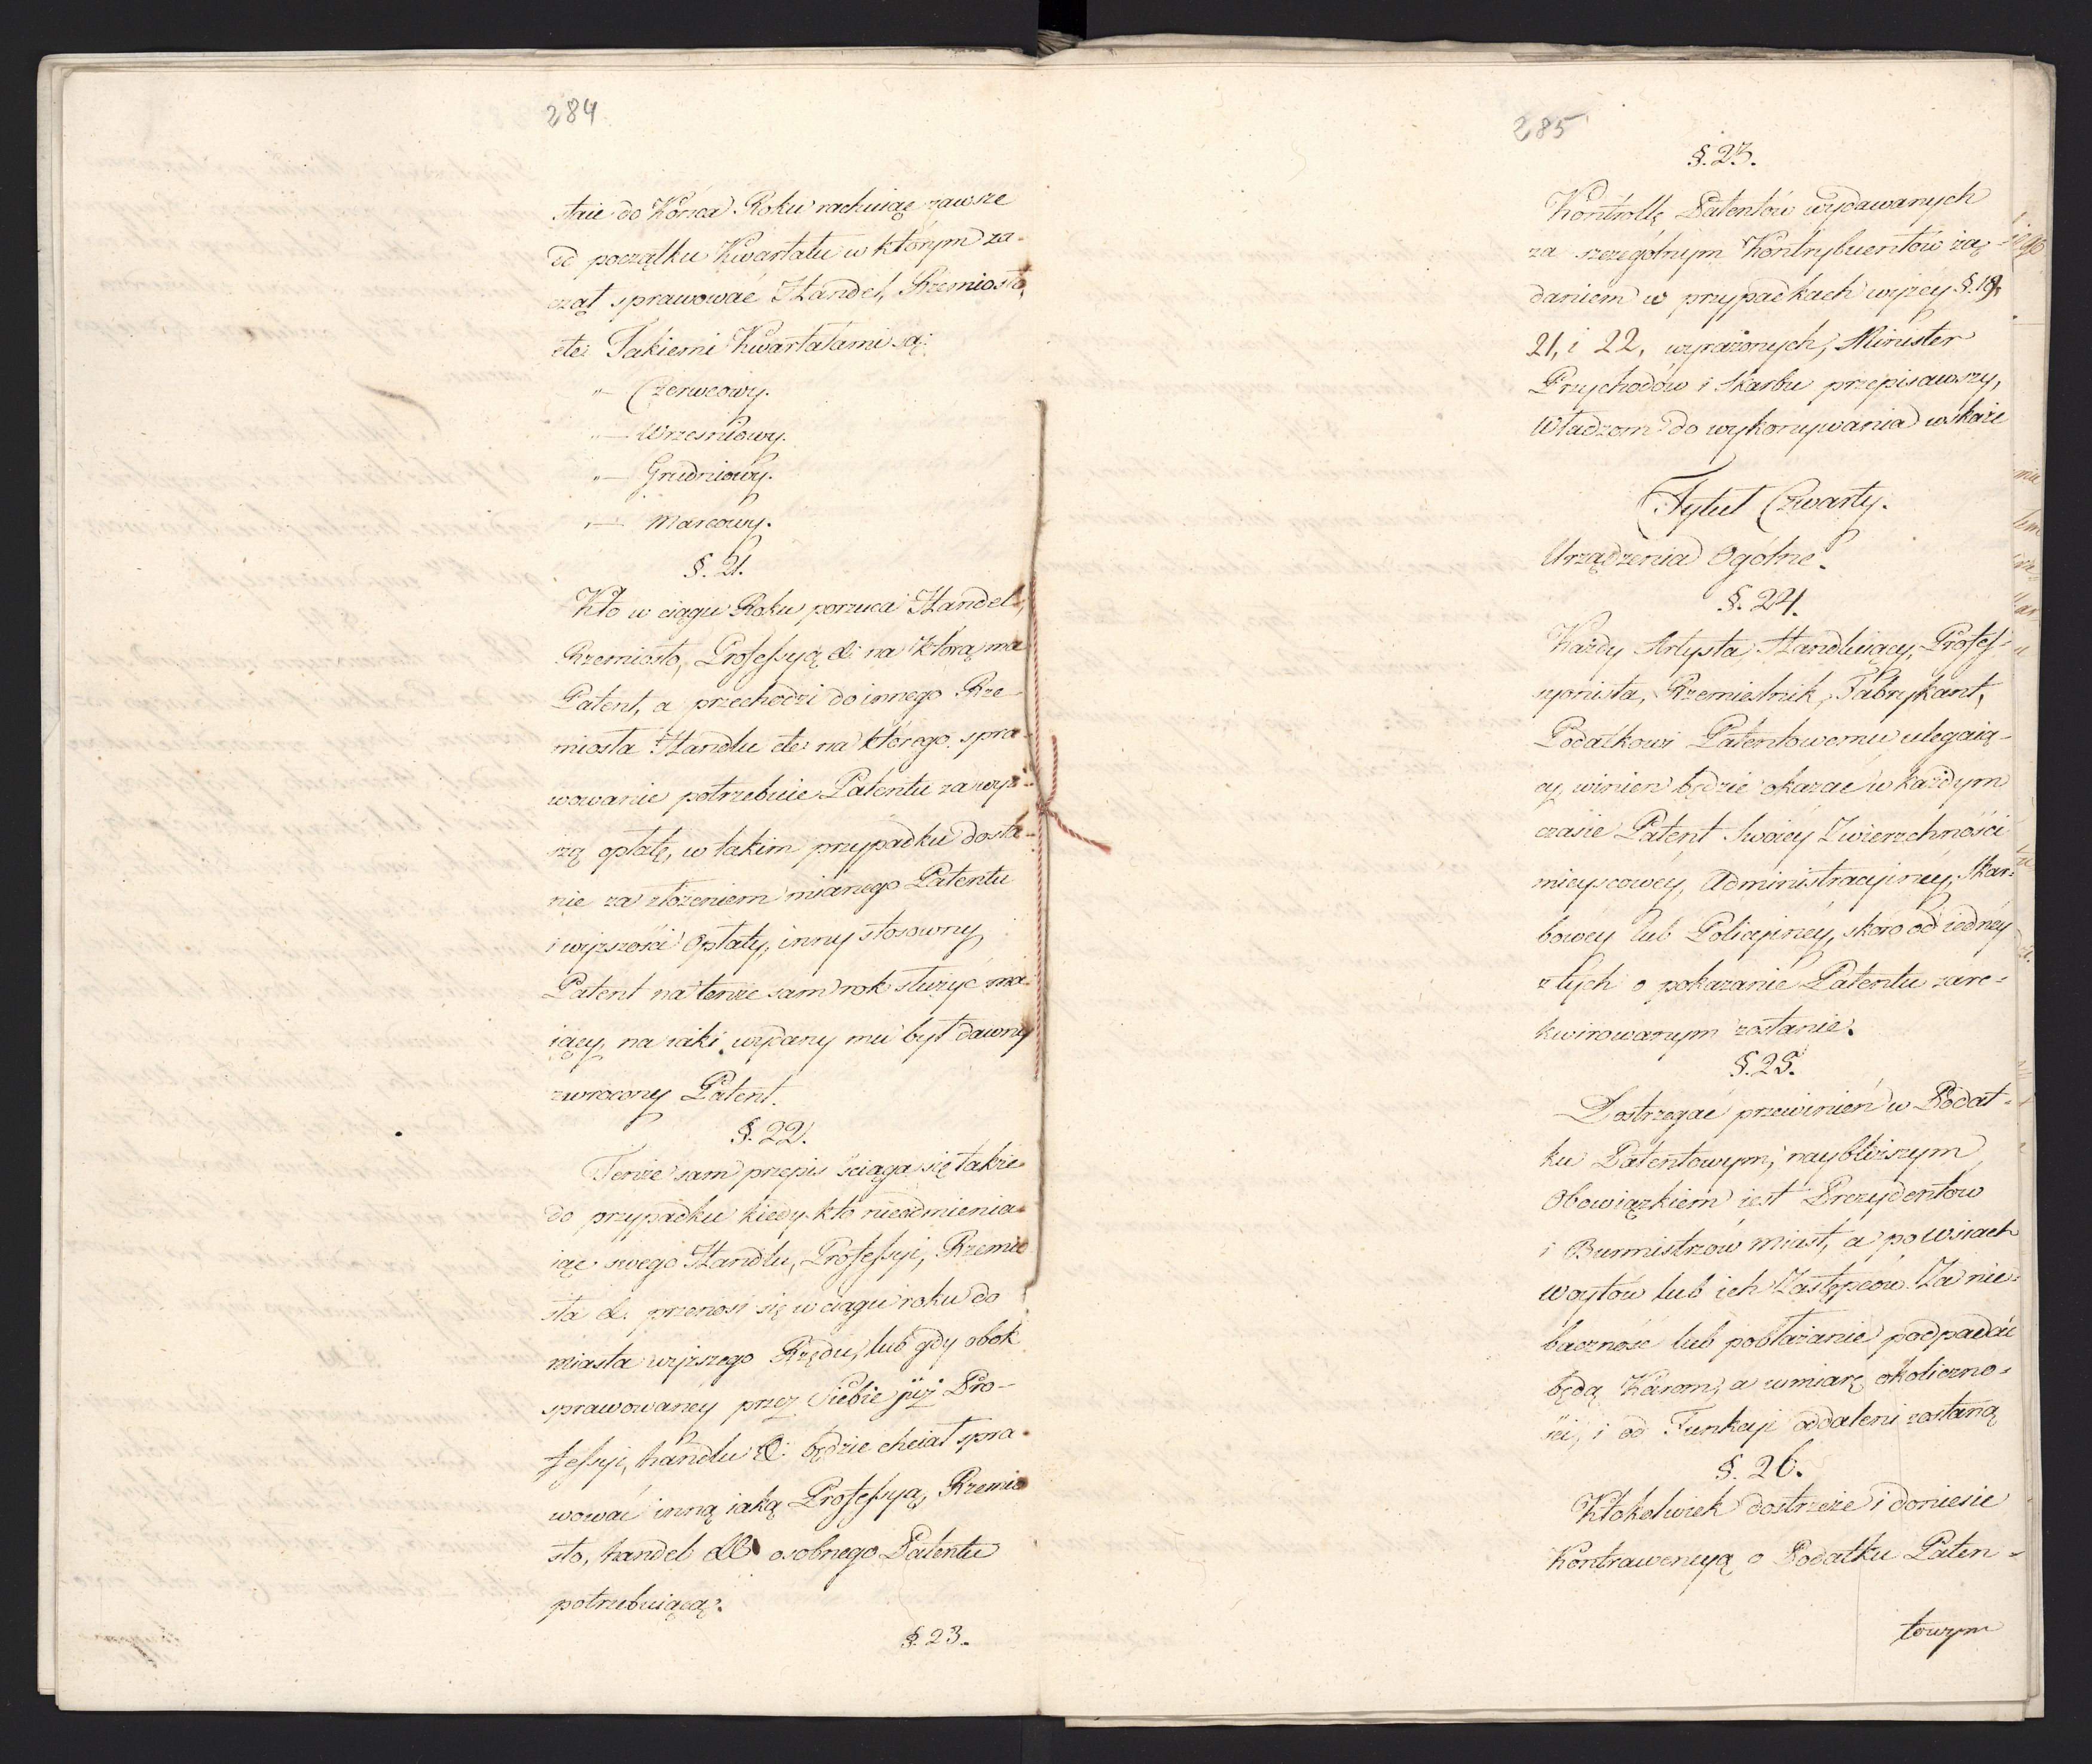 284
staie do Końca Roku rachuiąc zawsze
od początku Kwartału w którym za-
czął sprawować Handel, Rzemiosło,
etc: Takiemi Kwartałami są:
"— Czerwcowy.
"— Wrzesniowy.
"— Grudniowy.
"— Marcowy.
§. 21.
Kto w ciągu Roku porzuca Handel,
Rzemiosło, Professyą &: na którą ma
Patent, a przechodzi do innego Rze-
miosła Handlu etc: na którego spra-
wowanie potrzebuie Patentu za wyż-
szą opłatę, w takim przypadku dosta-
nie za złożeniem mianego Patentu
i wyższości Opłaty, inny stosowny
Patent na tenże sam rok służyć ma-
iący, na iaki wydany mu był dawny
zwrocony Patent.
§. 22.
Tenże sam przepis sciąga się także
do przypadku kiedy kto nieodmienia-
iąc swego Handlu, Professyi, Rzemio
sła &. przenosi się w ciągu roku do
miasta wyższego Rzędu, lub gdy obok
sprawowaney przez Siebie już Pro-
fessyi, handlu &: będzie chciał spra-
wować inną iaką Professyą, Rzemio
sło, handel & osobnego Patentu
potrzebuiącą.
§. 23.
285
§. 23.
Kontrollę Patentów wydawanych
za szczególnym Kontrybuentów żą-
daniem w przypadkach wyżey §. 19,
21, i 22, wyrażonych, Minister
Przychodów i Skarbu przepisawszy,
Władzom do wykonywania wskaże
Tytuł Czwarty.
Urządzenia Ogólne.
§. 24.
Każdy Artysta, Handluiący, Profes-
syonista, Rzemieslnik, Fabrykant,
Podatkowi Patentowemu ulegaią-
cy, winien będzie okazać w każdym
czasie Patent Swoiey Zwierzchności
mieyscowéy, Administracyinéy, Skar-
bowey lub Policyinéy, skoro od iednéy
z tych o pokazanie Patentu zare-
kwirowanym zostanie.
§. 25.
Dostrzegać przewinień w Podat-
ku Patentowym, naybliższym
Obowiązkiem iest Prezydentow
i Burmistrzów miast, a po Wsiach
Woytów lub ich Zastępców. Za nie-
baczność lub pobłażanie podpadać
będą Karom, a w miarę okoliczno-
ści, i od Funkcyi oddaleni zostaną
§. 26.
Ktokolwiek dostrzeże i doniesie
Kontrawencyą o Podatku Paten-
towym